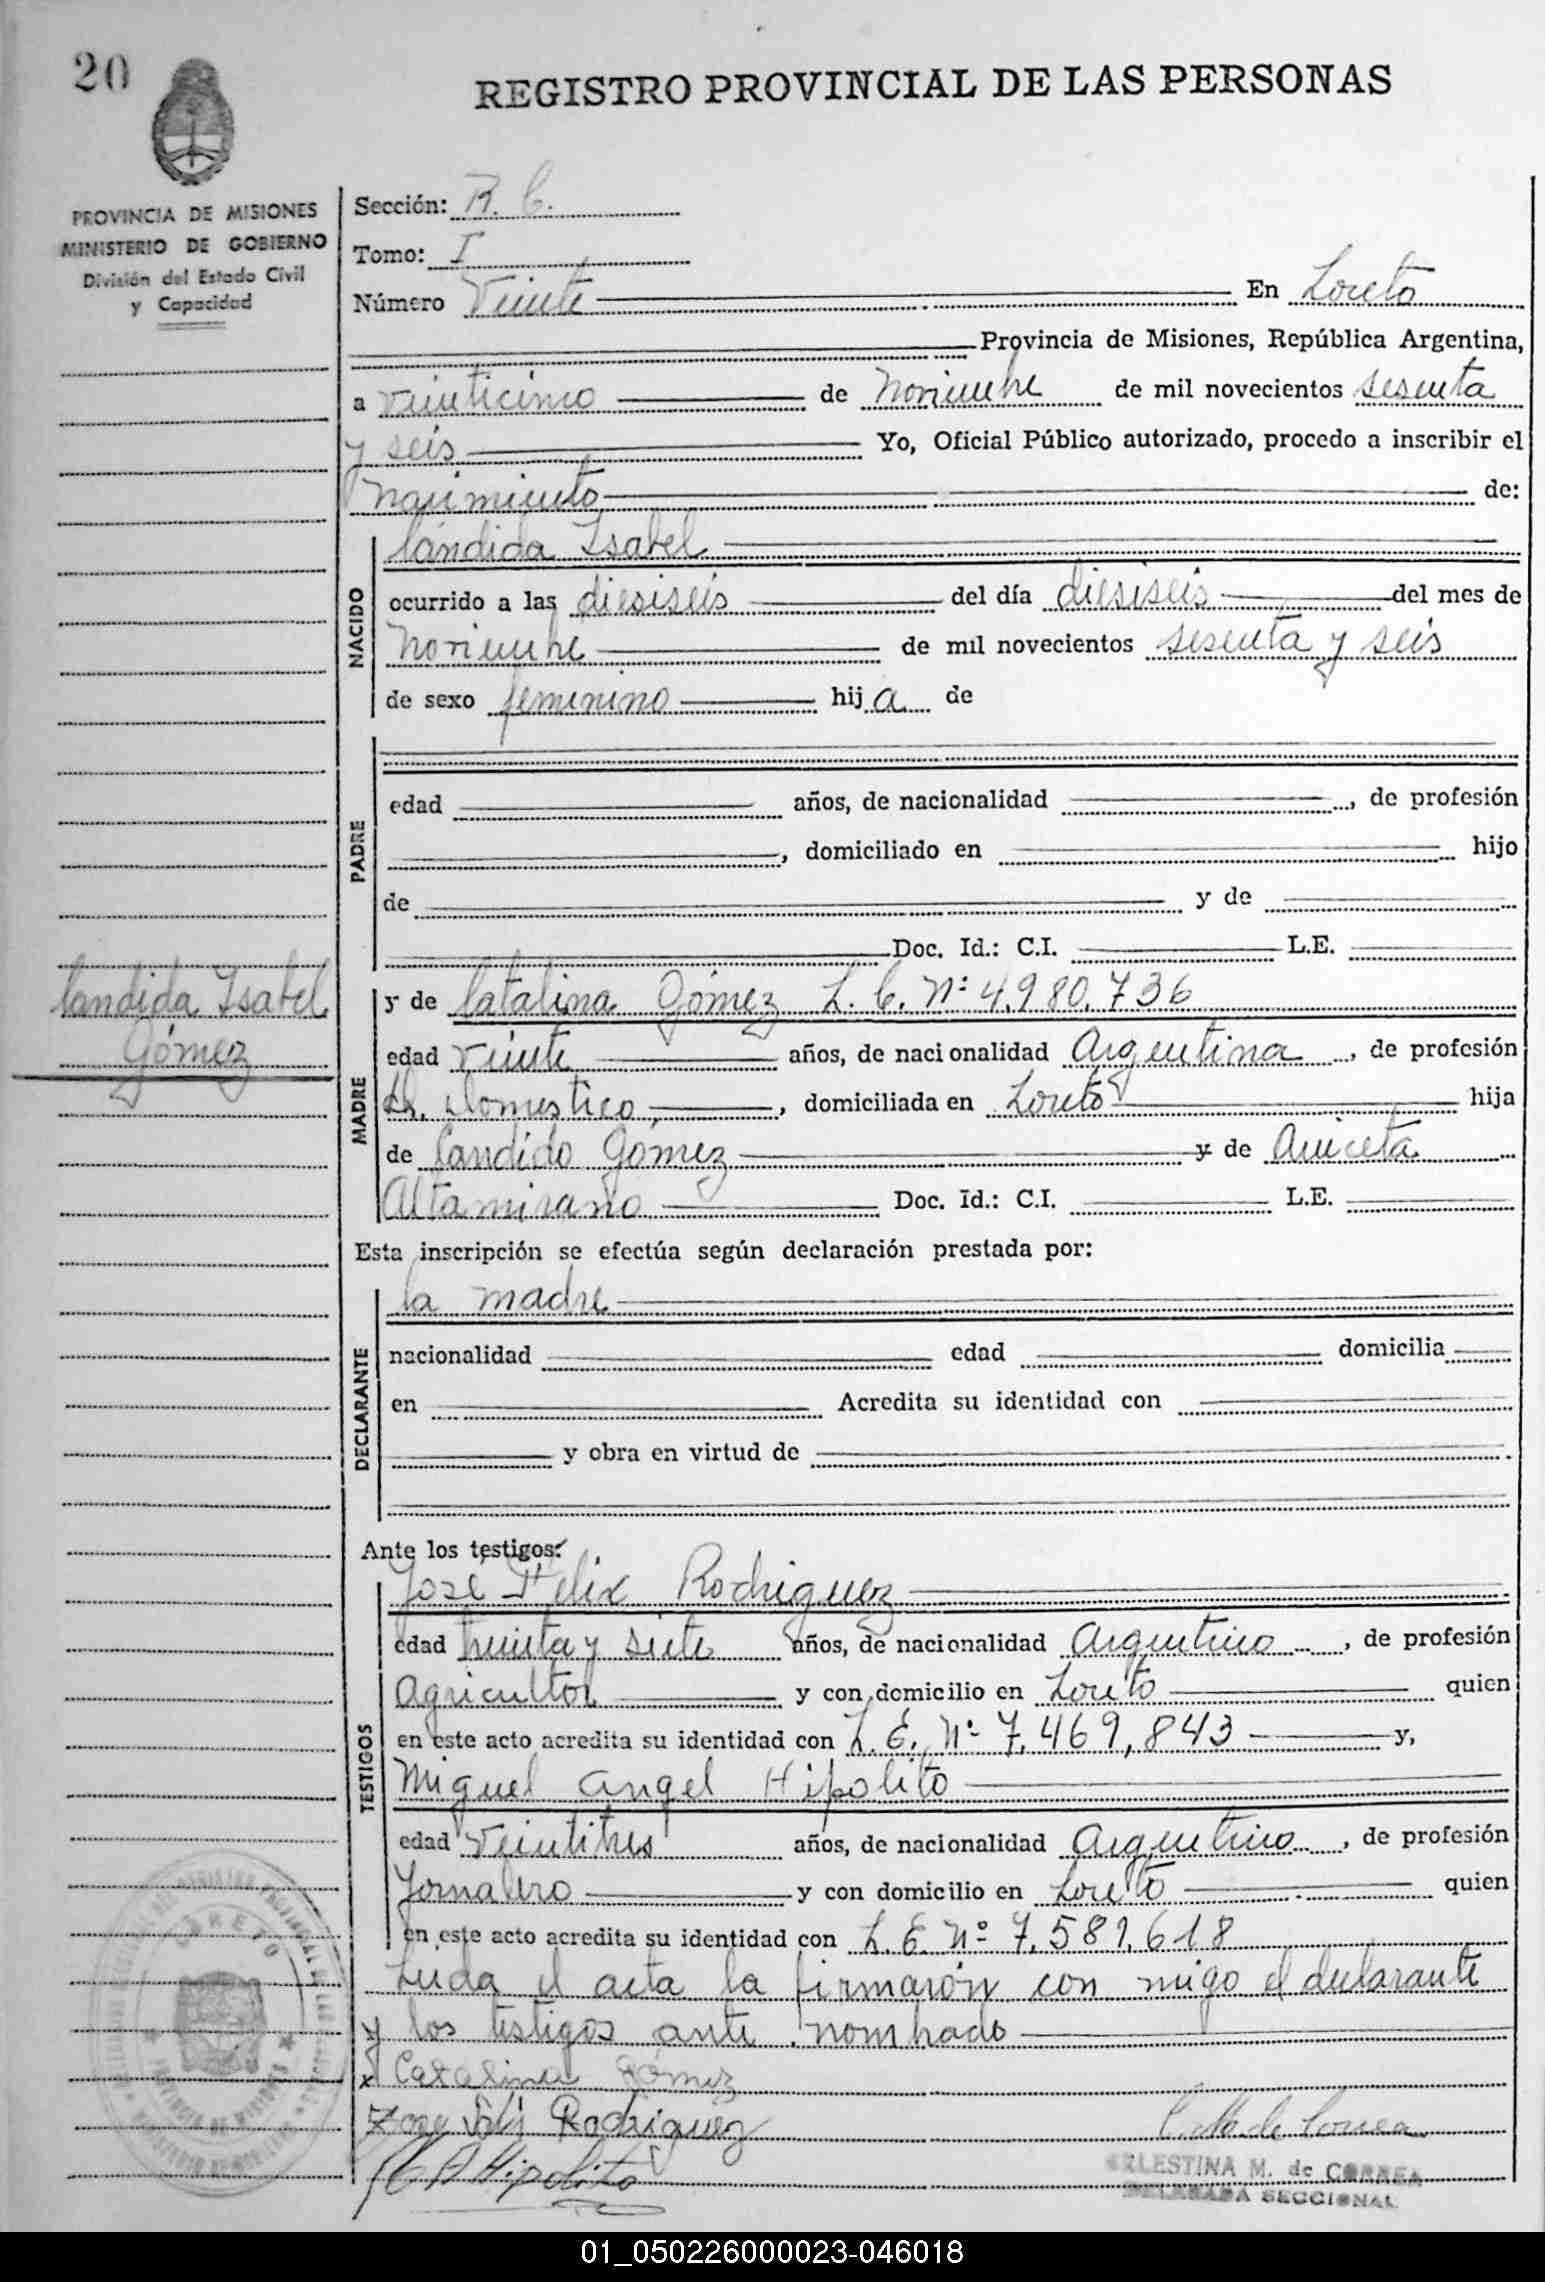 20
REGISTRO PROVINCIAL DE LAS PERSONAS
PROVINCIA DE MISIONES
MINISTERIO DE GOBIERNO
División del Estado Civil
y Capacidad
Sección: B. C.
Tomo: I
Número Veinte En Loreto
Provincia de Misiones, República Argentina,
a Veinticinco de Noviembre de mil novecientos sesenta
y seis Yo, Oficial Público autorizado, procedo a inscribir el
Nacimiento de:
NACIDO
Cándida Isabel
ocurrido a las diesiseis del día diesiseis del mes de
Noviembre de mil novecientos sesenta y seis
de sexo femenino hij a de
PADRE
edad años, de nacionalidad , de profesión
, domiciliado en hijo
de y de
Doc. Id.: C.I. L.E.
Candida Isabel
Gómez
MADRE
y de Catalina Gómez L. C. Nº 4.980.736
edad Veinte años, de nacionalidad Argentina , de profesión
domestico , domiciliada en Loreto hija
de Candido Gómez y de Aniceta
Altamirano Doc. Id.: C.I. L.E.
Esta inscripción se efectúa según declaración prestada por:
DECLARANTE
la madre
nacionalidad edad domicilia
en Acredita su identidad con
y obra en virtud de
Ante los testigos:
TESTIGOS
José Felix Rodriguez
edad treinta y siete años, de nacionalidad Argentino , de profesión
Agricultor y con domicilio en Loreto quien
en este acto acredita su identidad con L. E. Nº 7.469,843 y,
Miguel Angel Hipolito
edad Veintitres años, de nacionalidad Argentino , de profesión
Jornalero y con domicilio en Loreto quien
en este acto acredita su identidad con L. E. Nº 7.581.618
Leida el acta la firmarón con migo el declarante
y los testigos ante nombrado
x Catalina Gómez
Rodriguez
Hipolito
C. M. de Correa
CELESTINA M. de CORREA
DELEGADA SECCIONAL
LORETO
PROVINCIA DE MISIONES
01_050226000023-046018